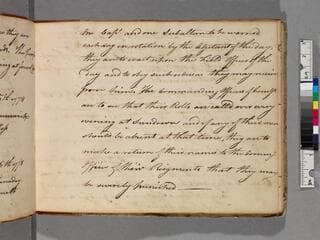 One Capt. and one Subaltern to be warned
each day in rotation by the Adjutant of the day,
they are to wait upon the Field Officer of the
Day and to obey such orders as they may receive
from him. The Commanding Officers of
are to see that their Rolls are called over every
evening at Sundown and if any of their men
should be absent at that time, they are to
make a return of their names to the
Officer of their Regiments that they may
be severely punished